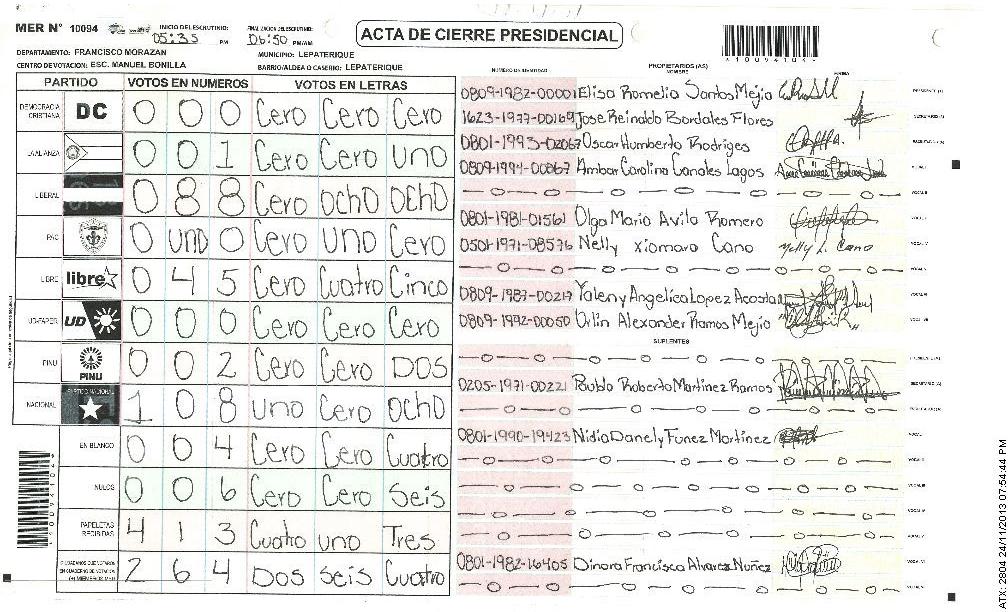 MER N° 10094
INICIO DEL ESCRUTINIO: 05:35 PM
FINALIZACION DEL ESCRUTINIO: 06:50 PM/AM
ACTA DE CIERRE PRESIDENCIAL
DEPARTAMENTO: FRANCISCO MORAZAN
MUNICIPIO: LEPATERIQUE
CENTRO DE VOTACION: ESC. MANUEL BONILLA
BARRIO/ALDEA O CASERIO: LEPATERIQUE
PARTIDO VOTOS EN NUMEROS VOTOS EN LETRAS
DEMOCRACIA CRISTIANA DC 0 0 0 Cero Cero Cero
LA ALIANZA 0 0 1 Cero Cero Uno
LIBERAL 0 8 8 Cero OchO OchO
PAC 0 UNO 0 Cero UNO Cero
LIBRE libre 0 4 5 Cero Cuatro Cinco
UD-FAPER UD 0 0 0 Cero Cero Cero
PINU PINU 0 0 2 Cero Cero DOS
NACIONAL 1 0 8 UNO Cero OchO
EN BLANCO 0 0 4 Cero Cero Cuatro
NULOS 0 0 6 Cero Cero Seis
PAPELETAS RECIBIDAS 4 1 3 Cuatro uno Tres
2 6 4 DOS Seis Cuatro
NUMERO DE IDENTIDAD PROPIETARIOS (AS) NOMBRE FIRMA
0809-1982-00001 Elisa Romelia Santos Mejia PRESIDENTE (A)
1623-1977-00169 Jose Reinaldo Bordales Flores SECRETARIO (A)
0801-1993-02067 Oscar Humberto Rodriges
0809-1994-00067 Ambar Carolina Canales Lagos
0801-1981-01561 Olga Mario Avila Romero
0501-1971-08576 Nelly Xiomara Cano Nelly L. Cano
0809-1987-00219 Yaleny Angelica Lopez Acosta
0809-1992-00050 Orlin Alexander Ramos Mejia
SUPLENTES
0205-1971-00221 Pablo Roberto Martinez Ramos SECRETARIO (A)
0801-1990-19423 Nidia Danely Funez Martinez
0801-1982-16405 Dinora Francisca Alvarez Nuñez
ATX: 2804 24/11/2013 07:54:44 PM